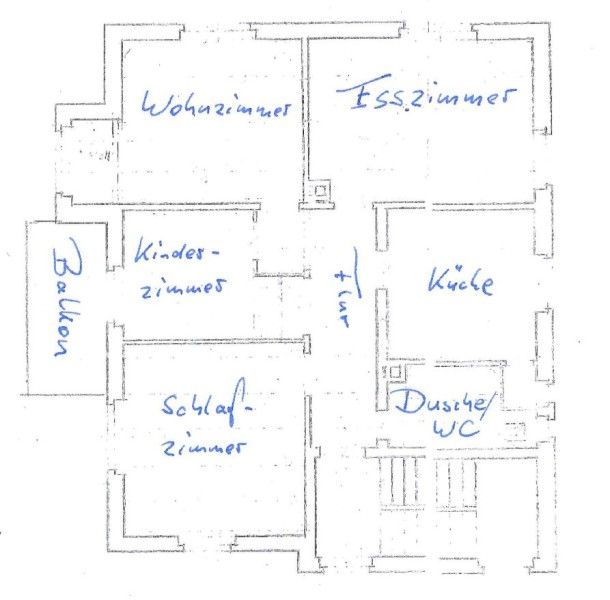 Wohnzimmer
Esszimmer
Balkon
Kinder-
zimmer
Flur
Küche
Schlaf-
zimmer
Dusche/
WC